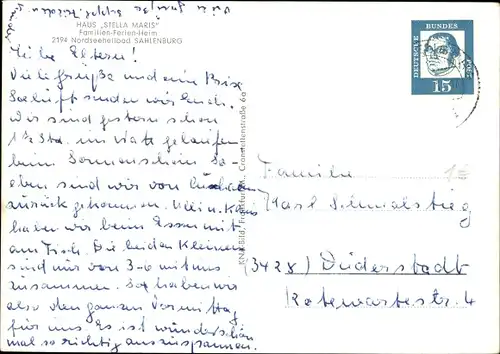 HAUS „STELLA MARIS"
Familien-Ferien-Heim
2194 Nordseeheilbad SAHLENBURG
Liebe Eltern!
Viele Grüße und eine Brise
Seeluft senden wir Euch.
Wir sind gestern schon
1½ Std. im Watt gelaufen
beim Sonnenschein. So-
eben sind wir von Cuxhaven
zurück gekommen. Klein. Klaus
haben wir beim Essen mit
am Tisch. Die beiden Kleinen
sind nur von 3-6 mit uns
zusammen. So haben wir
also den ganzen Vormittag
für uns. Es ist wunderschön
mal so richtig auszuspannen.
DEUTSCHE BUNDES POST
15
Familie
Karl Schmalstieg
(3428) Duderstadt
Rotewartestr. 4